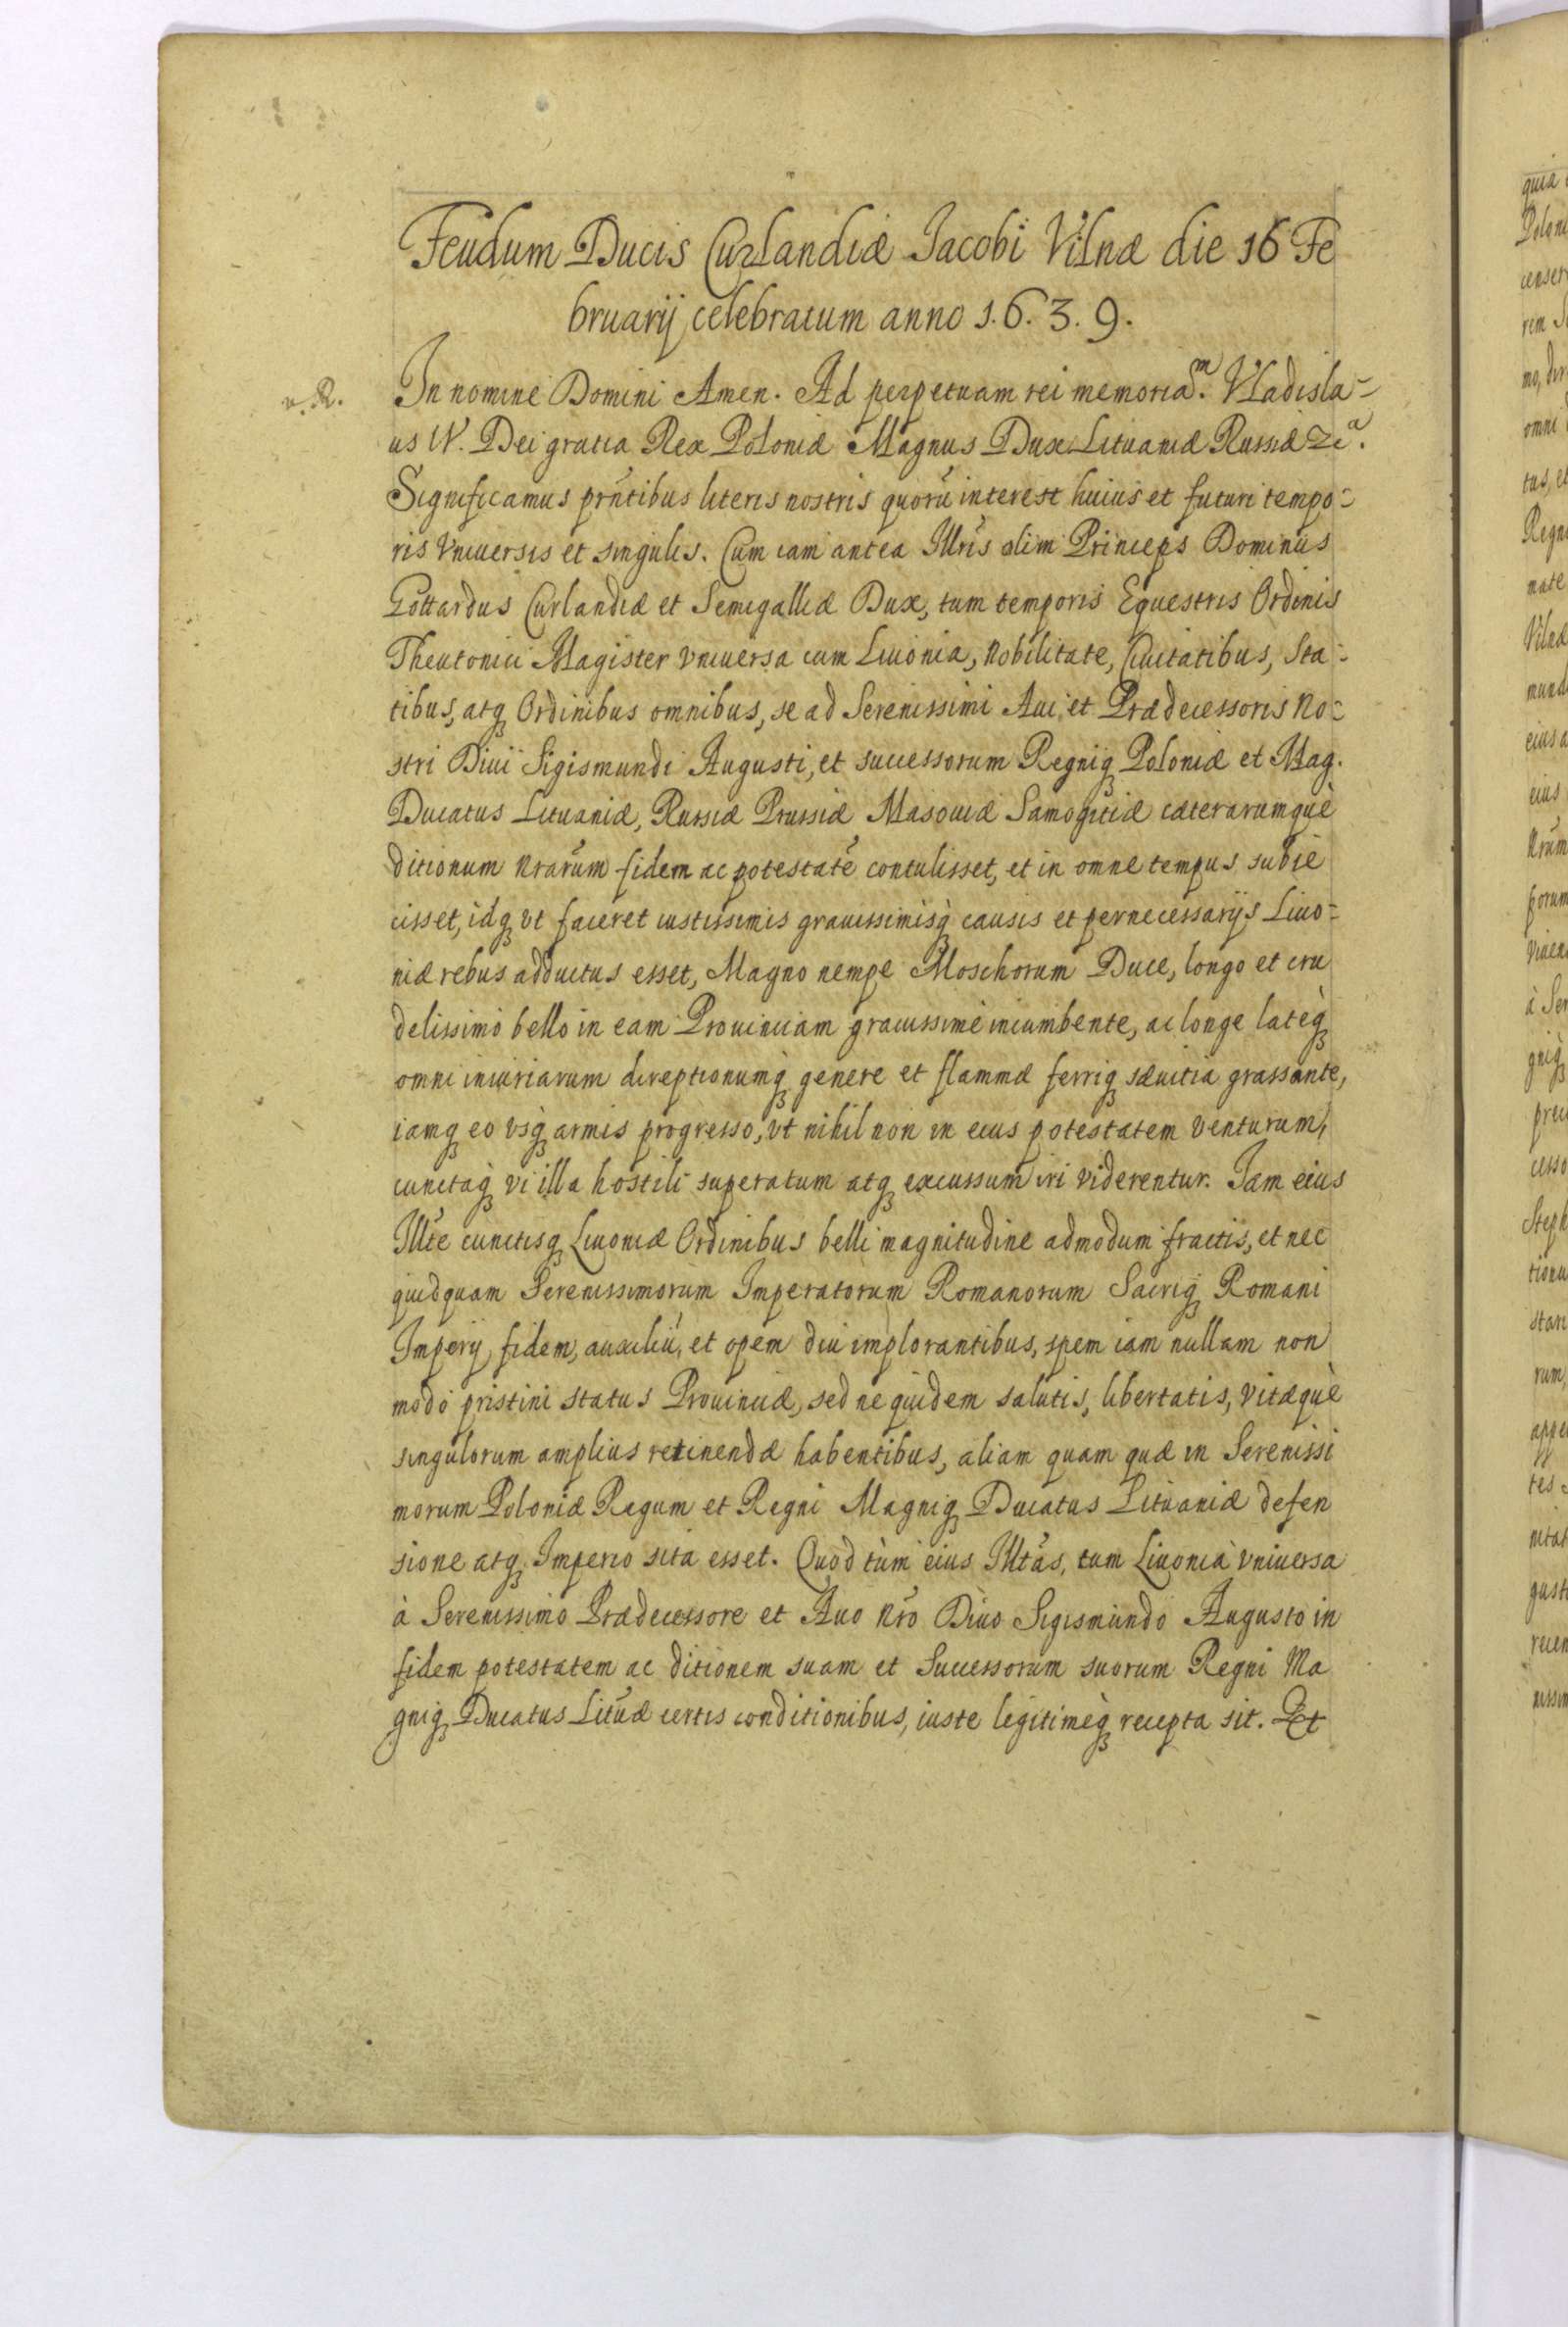 Feudum Ducis Curlandiæ Jacobi Vilnæ die 16 Fe
bruarij celebratum anno 1.6.3.9.
In nomine Domini Amen. Ad perpetuam rei memoriam. Vladisla=
us IV. Dei gratia Rex Poloniæ Magnus Dux Lituaniæ Russiæ &ca.
Significamus prñtibus literis nostris quorũ interest huius et futuri tempo=
ris Vniuersis et singulis. Cum iam antea Illris olim Princeps Dominus
Gottardus Curlandiæ et Semigalliæ Dux, tum temporis Equestris Ordinis
Theutonici Magister vniuersa cum Liuonia, Nobilitate, Ciuitatibus, Sta=
tibus, atq Ordinibus omnibus, se ad Serenissimi Aui et Prædecessoris No=
stri Diui Sigismundi Augusti, et successorum Regniq Poloniæ et Mag.
Ducatus Lituaniæ, Russiæ Prussiæ Masouiæ Samogitiæ cæterarumquè
ditionum Nrarum fidem ac potestatẽ contulisset, et in omne tempus subie
cisset, idq vt faceret iustissimis grauissimisq causis et pernecessarijs Liuo=
niæ rebus adductus esset, Magno nempe Moschorum Duce, longo et cru
delissimo bello in eam Prouinciam grauissimè incumbente, ac longe latèq
omni iniuriarum direptionumq genere et flammæ ferriq sæuitia grassante,
iamq eo vsq armis progresso, vt nihil non in eius potestatem venturum,
cunctaq vi illa hostili superatum atq excussum iri viderentur. Iam eius
Illte cunctisq Liuoniæ Ordinibus belli magnitudine admodum fractis, et nec
quidquam Serenissimorum Imperatorum Romanorum Sacriq Romani
Imperij fidem, auxiliũ, et opem diu implorantibus, spem iam nullam non
modo pristini status Prouinciæ, sed ne quidem salutis, libertatis, vitæquè
singulorum amplius retinendæ habentibus, aliam quam quæ in Serenissi
morum Poloniæ Regum et Regni Magniq Ducatus Lituaniæ defen
sione atq Imperio sita esset. Quod tùm eius Illtas, tum Liuonia vniuersa
à Serenissimo Prædecessore et Auo Nrõ Diuo Sigismundo Augusto in
fidem potestatem ac ditionem suam et Successorum suorum Regni Ma
gniq Ducatus Lituæ certis conditionibus, iuste legitimèq recepta sit. Et